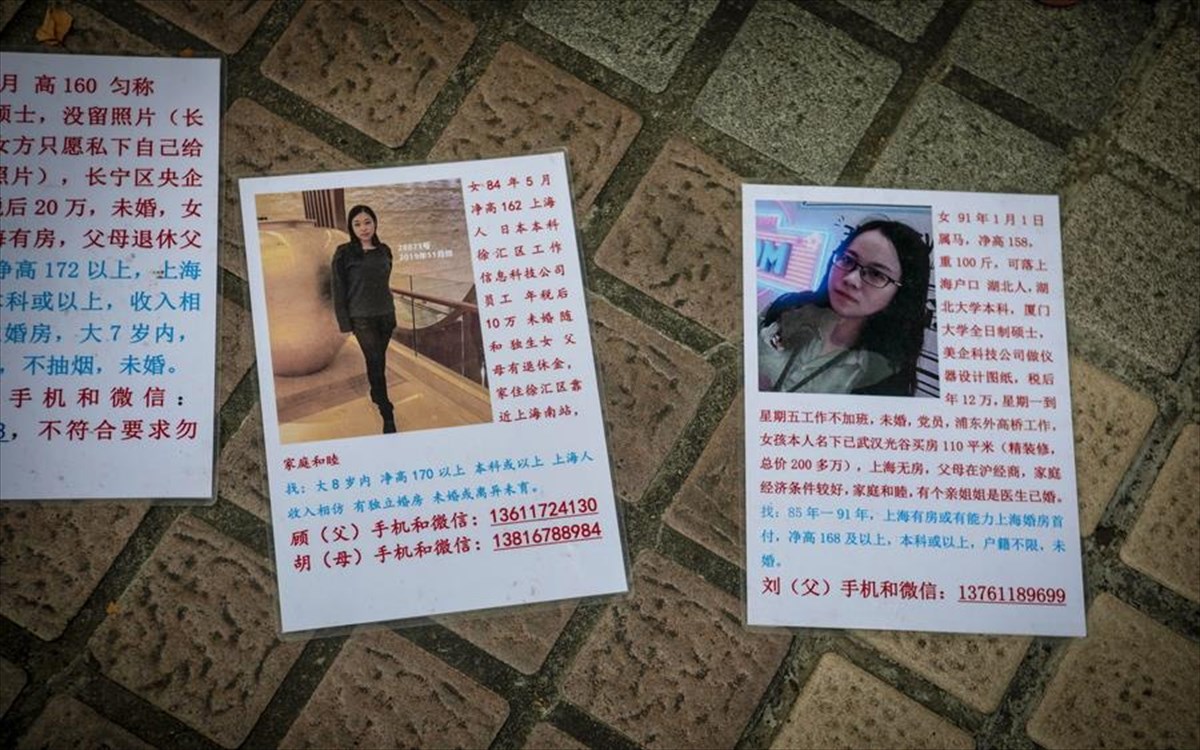 月 高160 匀称
硕士，没留照片（长
女方只愿私下自己给
照片），长宁区央企
税后20万，未婚，女
海有房，父母退休父
净高172以上，上海
本科或以上，收入相
婚房，大7岁内，
，不抽烟，未婚。
手机和微信：
8，不符合要求勿
女 84年5月
净高162 上海
人 日本本科
徐汇区工作
信息科技公司
员工 年税后
10万 未婚 随
和 独生女 父
母有退休金，
家住徐汇区靠
近上海南站，
家庭和睦
找：大8岁内 净高170以上 本科或以上 上海人
收入相仿 有独立婚房 未婚或离异未育。
顾（父）手机和微信：13611724130
胡（母）手机和微信：13816788984
2019年11月拍
女 91年1月1日
属马，净高158，
重100斤，可落上
海户口 湖北人，湖
北大学本科，厦门
大学全日制硕士，
美企科技公司做仪
器设计图纸，税后
年12万，星期一到
星期五工作不加班，未婚，党员，浦东外高桥工作，
女孩本人名下已武汉光谷买房110平米（精装修，
总价200多万），上海无房，父母在沪经商，家庭
经济条件较好，家庭和睦，有个亲姐姐是医生已婚。
找：85年一91年，上海有房或有能力上海婚房首
付，净高168及以上，本科或以上，户籍不限，未
婚。
刘（父）手机和微信：13761189699